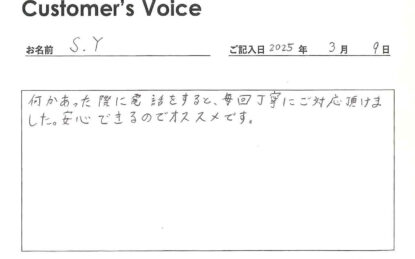 Customer's Voice
お名前 S.Y ご記入日 2025 年 3 月 9 日
何かあった際に電話をすると、毎回丁寧にご対応頂けま
した。安心できるのでオススメです。